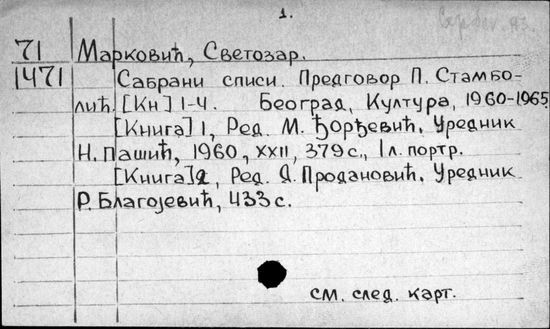 1.
71 Марковић, Светозар.
1471 Сабрани списи. Предговор П. Стамбо-
лић. [Кн] 1-4. Београд, Култура, 1960-1965
[Књига] 1, Ред. М. Ђорђевић. Уредник
Н. Пашић, 1960, XXII, 379 с., 1 л. портр.
[Књига] 2, Ред. Д. Продановић. Уредник
Р. Благојевић, 433 с.
см. след. карт.